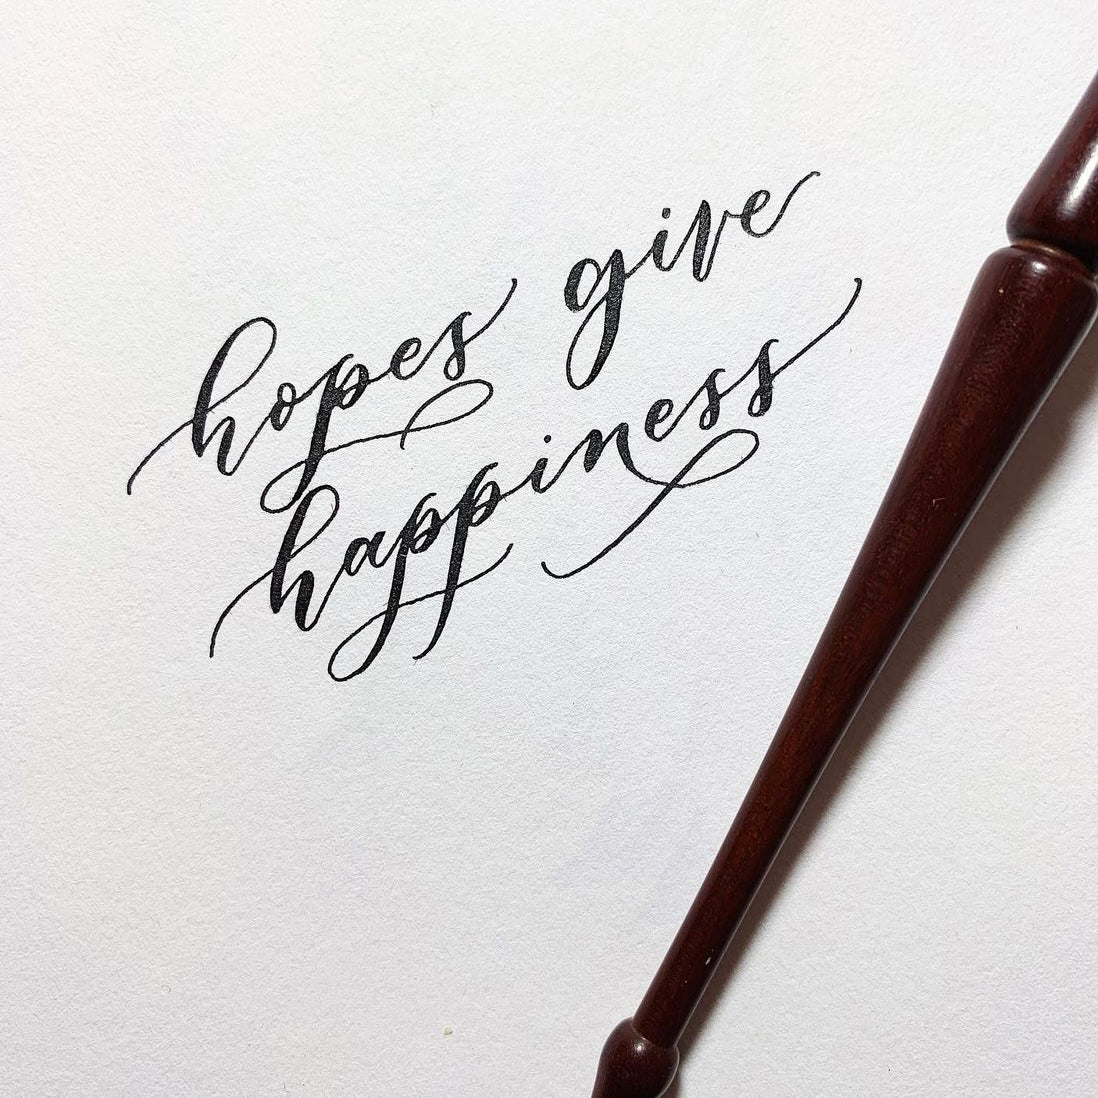 hopes give
happiness